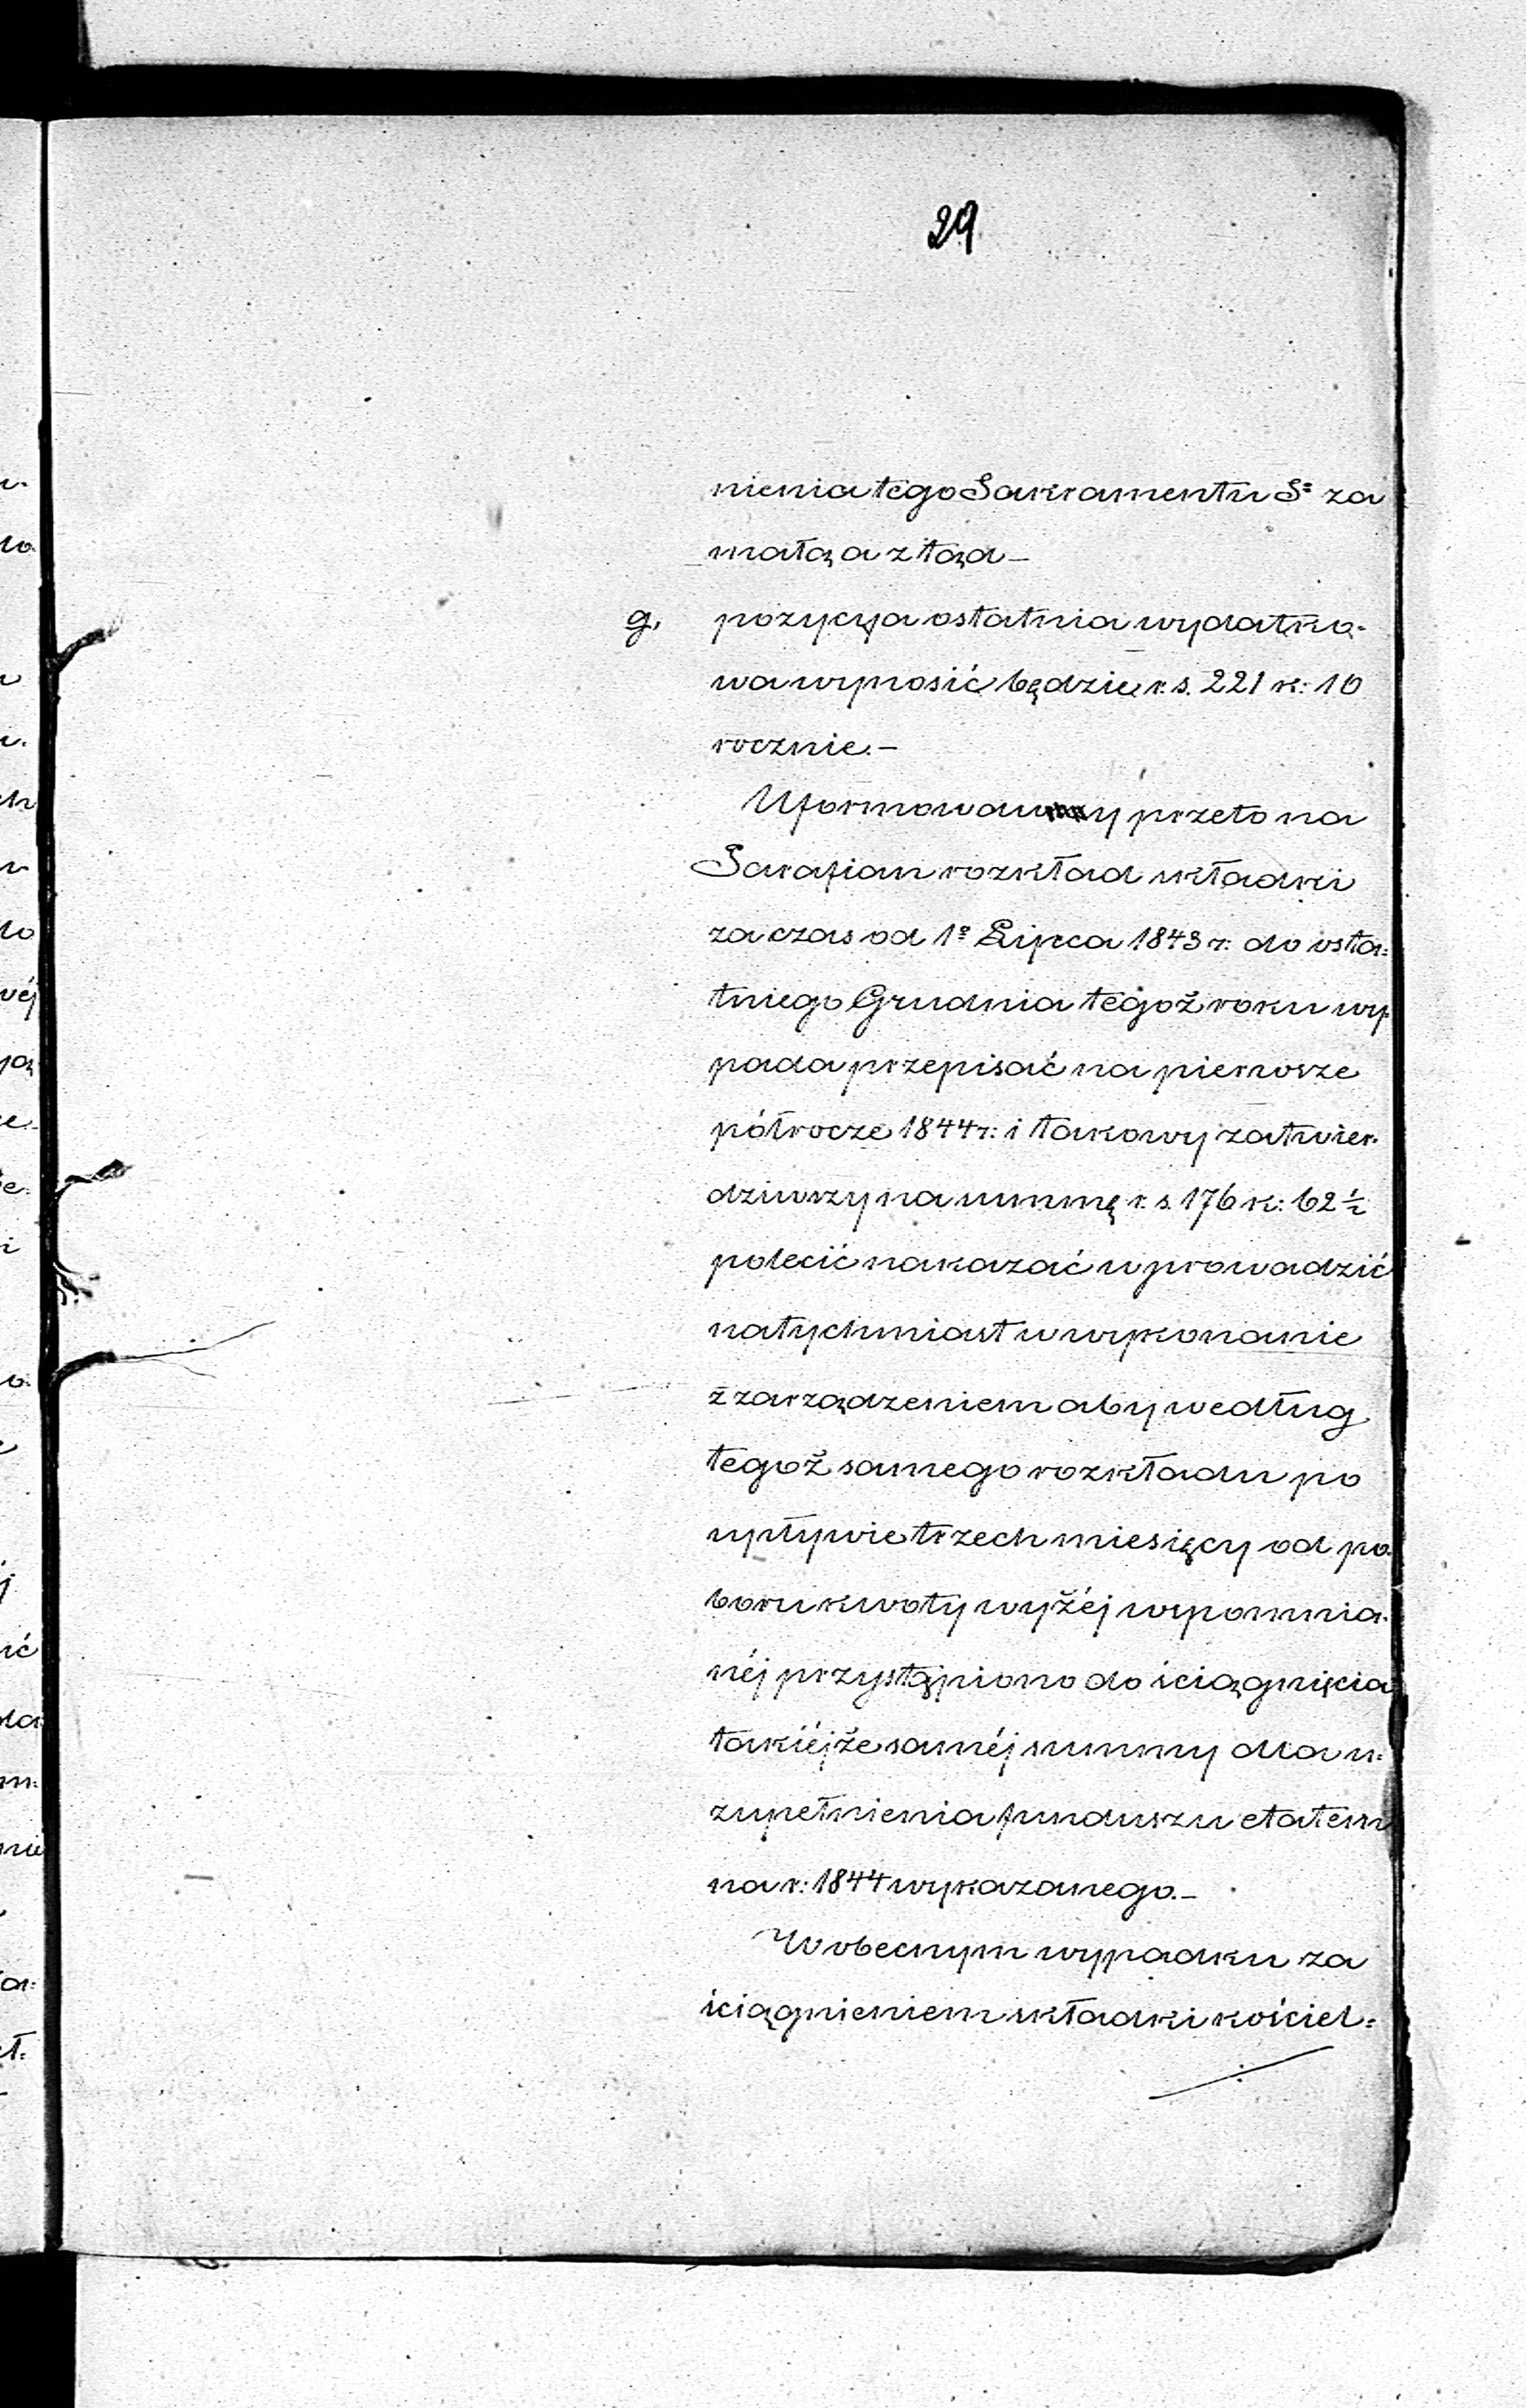 29
nienia tego Sakramentu Sº za
małą a ztąd —
g, pozycya ostatnia wydatko-
wa wynosić będzie r. s. 221 k: 10
rocznie. —
Uformowany przeto na
Parafian rozkład składki
za czas od 1º Lipca 1843 r: do osta=
tniego Grudnia tegoż roku wy-
pada przepisać na pierwsze
półrocze 1844 r: i takowy zatwier-
dziwszy na summę r. s. 176 k: 62 ½
polecić nakazać wprowadzić
natychmiast w wykonanie
z zarządzeniem aby według
tegoż samego rozkładu po
upływie trzech miesięcy od po-
boru kwoty wyżéj wspomnia-
néj przystąpiono do ściągnięcia
takiéjże saméj summy dla u=
zupełnienia funduszu etatem
na r: 1844 wykazanego. —
W obecnym wypadku za
ściągnieniem składki kościel=